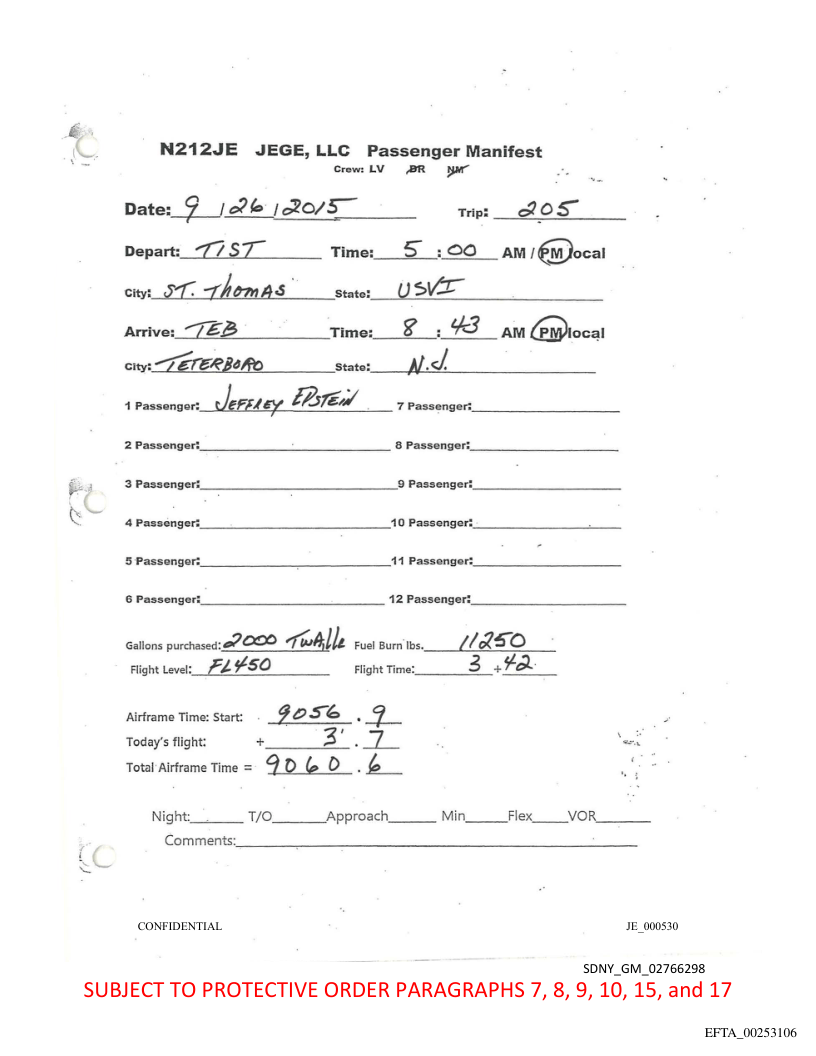 N212JE JEGE, LLC Passenger Manifest
Crew: LV DR NM
Date: 9 / 26 / 2015 Trip: 205
Depart: TIST Time: 5 : 00 AM / PM local
City: ST. THOMAS State: USVI
Arrive: TEB Time: 8 : 43 AM PM local
City: TETERBORO State: N.J.
1 Passenger: JEFFREY EPSTEIN 7 Passenger:
2 Passenger: 8 Passenger:
3 Passenger: 9 Passenger:
4 Passenger: 10 Passenger:
5 Passenger: 11 Passenger:
6 Passenger: 12 Passenger:
Gallons purchased: 2000 Fuel Burn lbs. 11250
Flight Level: FL450 Flight Time: 3 + 42
Airframe Time: Start: 9056 . 9
Today's flight: + 3 . 7
Total Airframe Time = 9060 . 6
Night: T/O Approach Min Flex VOR
Comments:
CONFIDENTIAL JE_000530
SDNY_GM_02766298
SUBJECT TO PROTECTIVE ORDER PARAGRAPHS 7, 8, 9, 10, 15, and 17
EFTA_00253106